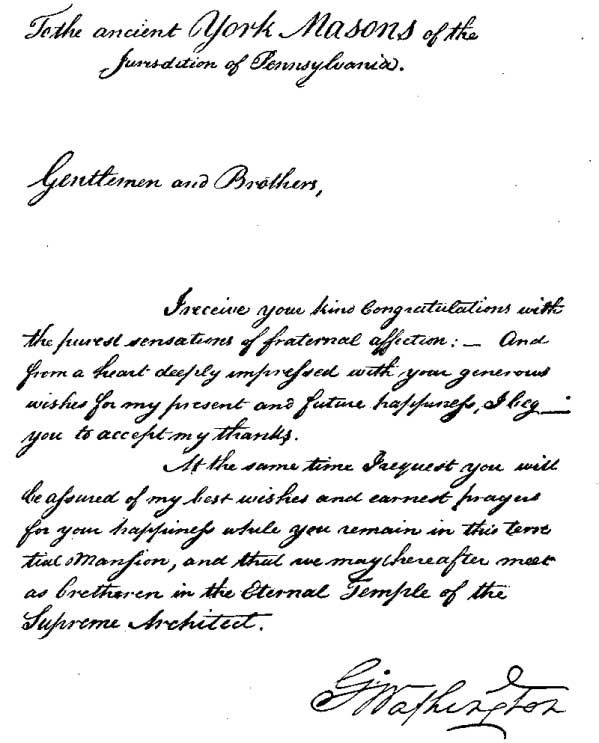 To the ancient York Masons of the
Jurisdition of Pennsylvania.
Gentlemen and Brothers,
I receive your kind Congratulations with
the purest sensations of fraternal affection: — And
from a heart deeply impressed with your generous
wishes for my present and future happiness, I beg —
you to accept my thanks.
At the same time I request you will
be assured of my best wishes and earnest prayers
for your happiness while you remain in this terre
tial Mansion, and that we may hereafter meet
as bretheren in the Eternal Temple of the
Supreme Architect.
G. Washington